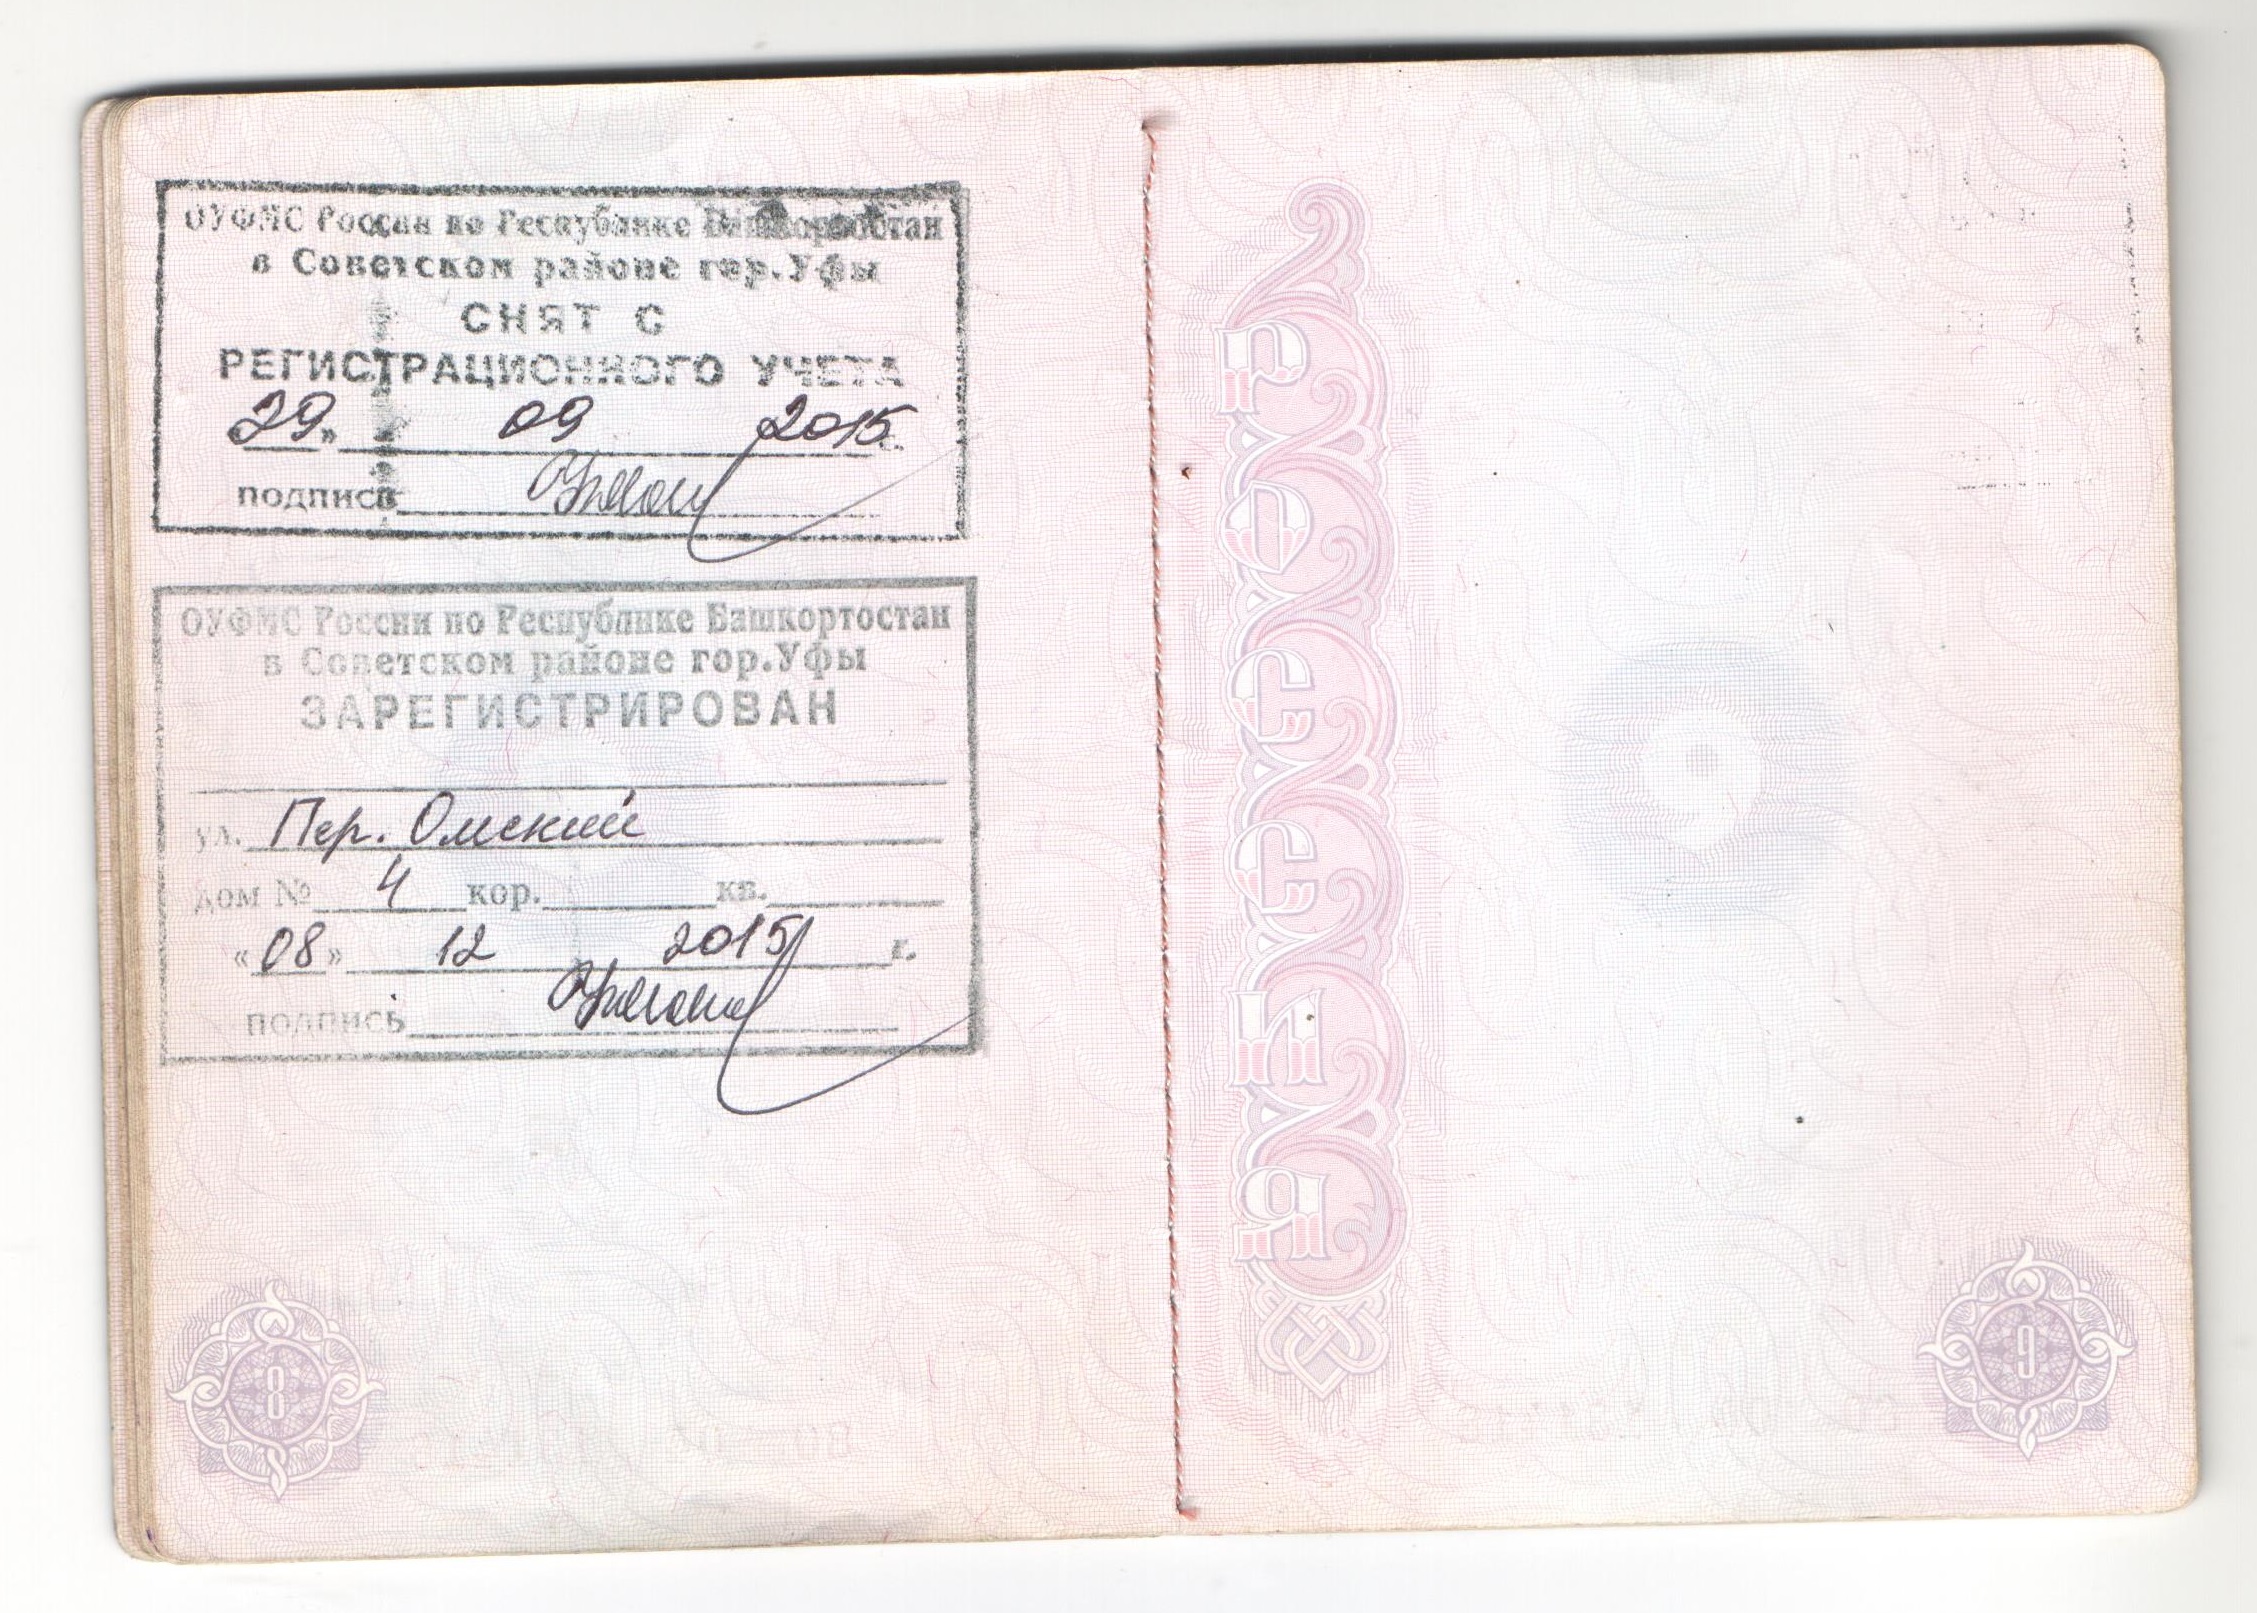 ОУФМС России по Республике Башкортостан
в Советском районе гор.Уфы
СНЯТ С
РЕГИСТРАЦИОННОГО УЧЕТА
«29» 09 2015 г.
подпись
ОУФМС России по Республике Башкортостан
в Советском районе гор.Уфы
ЗАРЕГИСТРИРОВАН
ул. Пер. Омский
дом № 4 кор. кв.
«08» 12 2015 г.
подпись
8
РОССИЯ
9
9